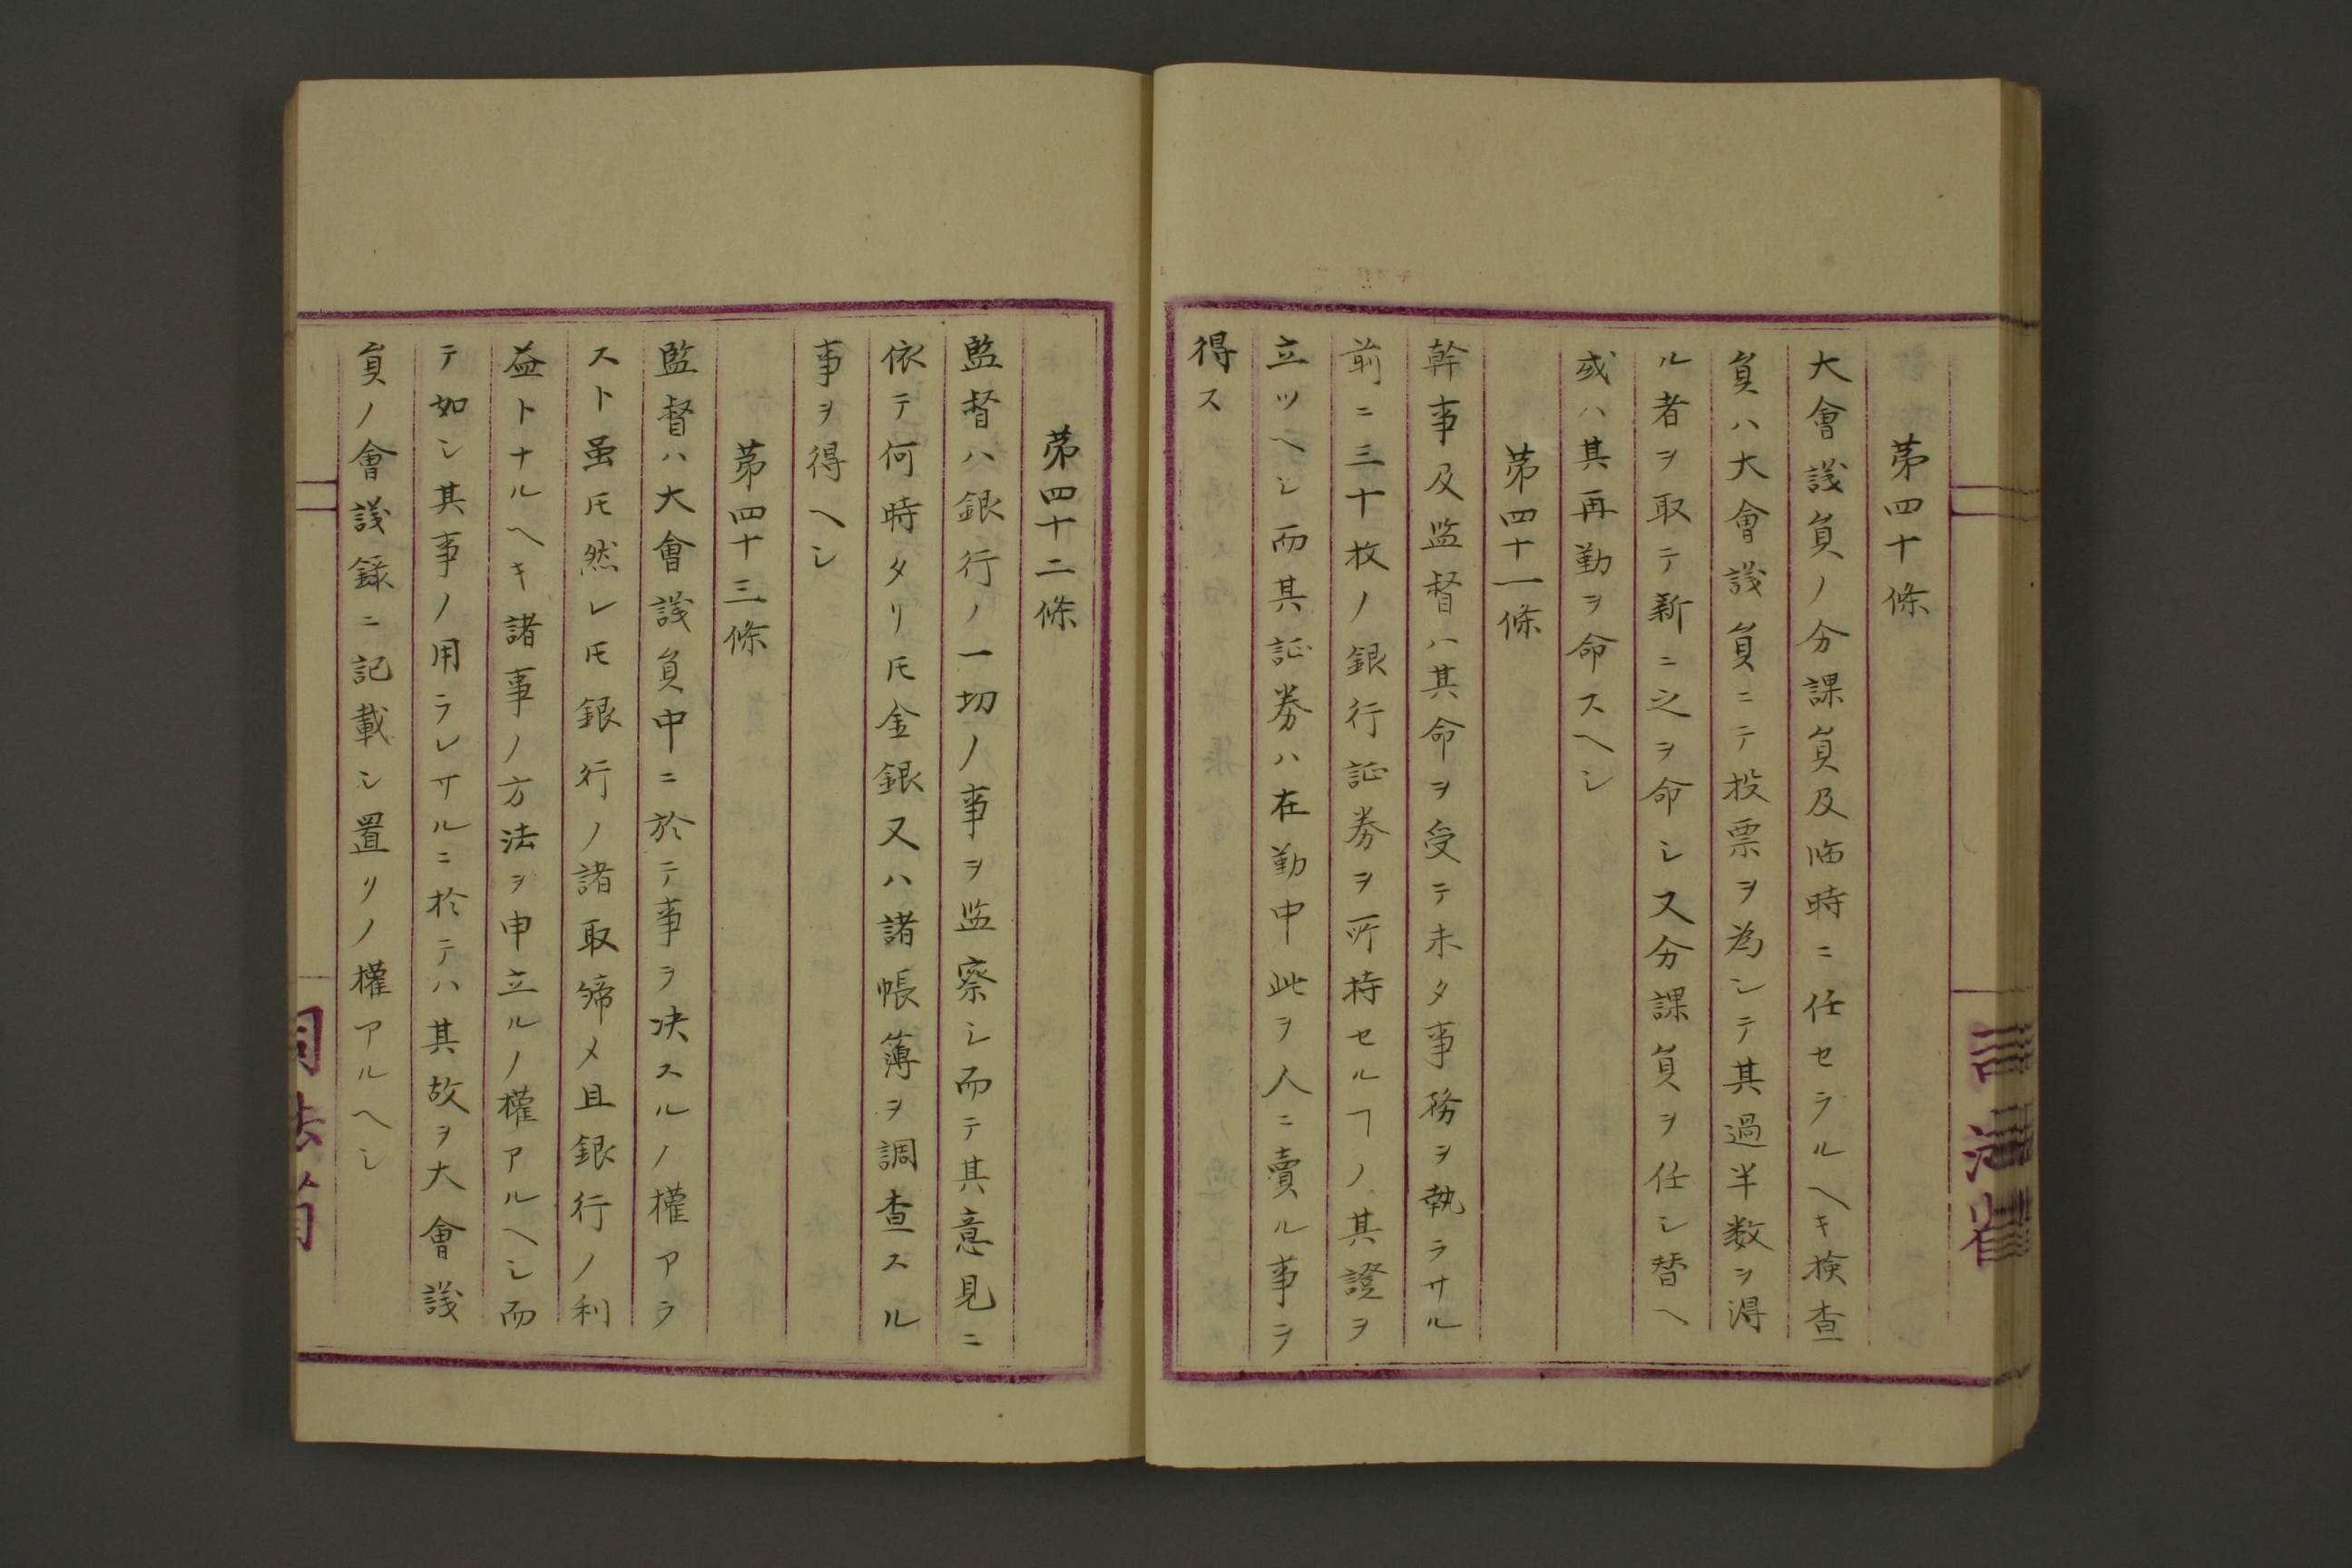 第四十條
大會議負ノ分課負及臨時ニ任セラルヘキ検査
負ハ大會議負ニテ投票ヲ為シテ其過半数ヲ得
ル者ヲ取テ新ニ之ヲ命シ又分課負ヲ任シ替ヘ
或ハ其再勤ヲ命スヘシ
第四十一條
幹事及监督ハ其命ヲ受テ未タ事務ヲ執ラサル
前ニ三十枚ノ銀行証券ヲ所持セルヿノ其證ヲ
立ツヘシ而其証券ハ在勤中此ヲ人ニ賣ル事ヲ
得ス
第四十二條
監督ハ銀行ノ一切ノ事ヲ监察シ而テ其意見ニ
依テ何時タリ𪜈金銀又ハ諸帳簿ヲ調査スル
事ヲ得ヘシ
第四十三條
監督ハ大會議負中ニ於テ事ヲ决スルノ權アラ
スト虽𪜈然レ𪜈銀行ノ諸取締メ且銀行ノ利
益トナルヘキ諸事ノ方法ヲ申立ルノ權アルヘシ而
テ如シ其事ノ用ラレサルニ於テハ其故ヲ大會議
負ノ會議録ニ記載シ置リノ權アルヘシ
司法省